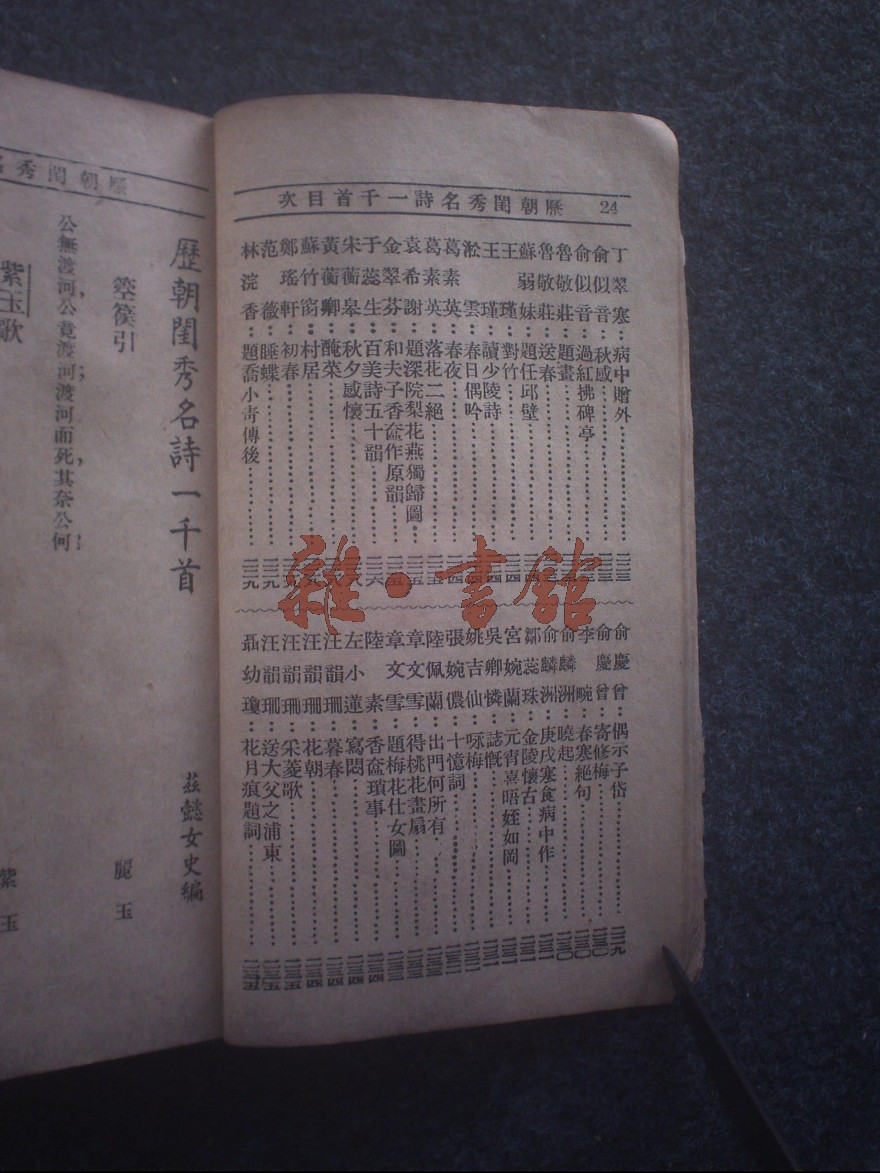 24 歷朝閨秀名詩一千首目次
丁翠寒：病中贈外
俞似音：秋感
俞似音：過紅拂碑亭
魯敬莊：題畫
魯敬莊：送春
蘇弱妹：題任邱壁
王瑾：對竹
王瑾：讀少陵詩
淞雲：春日偶吟
葛素英：春夜
葛素英：落花二絕
袁希謝：題深院梨花燕獨歸圖
金翠芬：和夫子香奩作原韻
于蕊生：百美詩五十韻
宋蘅皋：秋夕感懷
黃蘅卿：醃菜
蘇竹窗：村居
鄭瑤軒：初春
范薇：睡蝶
林浣香：題喬小青傳後
俞慶曾：偶示子岱
俞慶曾：寄修梅
李畹：春寒絕句
俞麟洲：曉起
俞麟洲：庚戌寒食病中作
鄒蕊珠：金陵懷古
宮婉蘭：元宵喜晤姪如岡
吳卿憐：誌慨
姚吉仙：咏梅
張婉儂：十憶詞
陸佩蘭：出門何所有
章文雪：得桃花畫扇
章文雪：題梅花仕女圖
陸素：香奩瑣事
左小蓮：寫悶
汪韻珊：暮春
汪韻珊：花朝
汪韻珊：采菱歌
汪韻珊：送大父之浦東
聶幼瓊：花月痕題詞
雜·書館
歷朝閨秀名
歷朝閨秀名詩一千首
茲懿女史編
箜篌引 麗玉
公無渡河，公竟渡河；渡河而死，其奈公何！
紫玉歌 紫玉